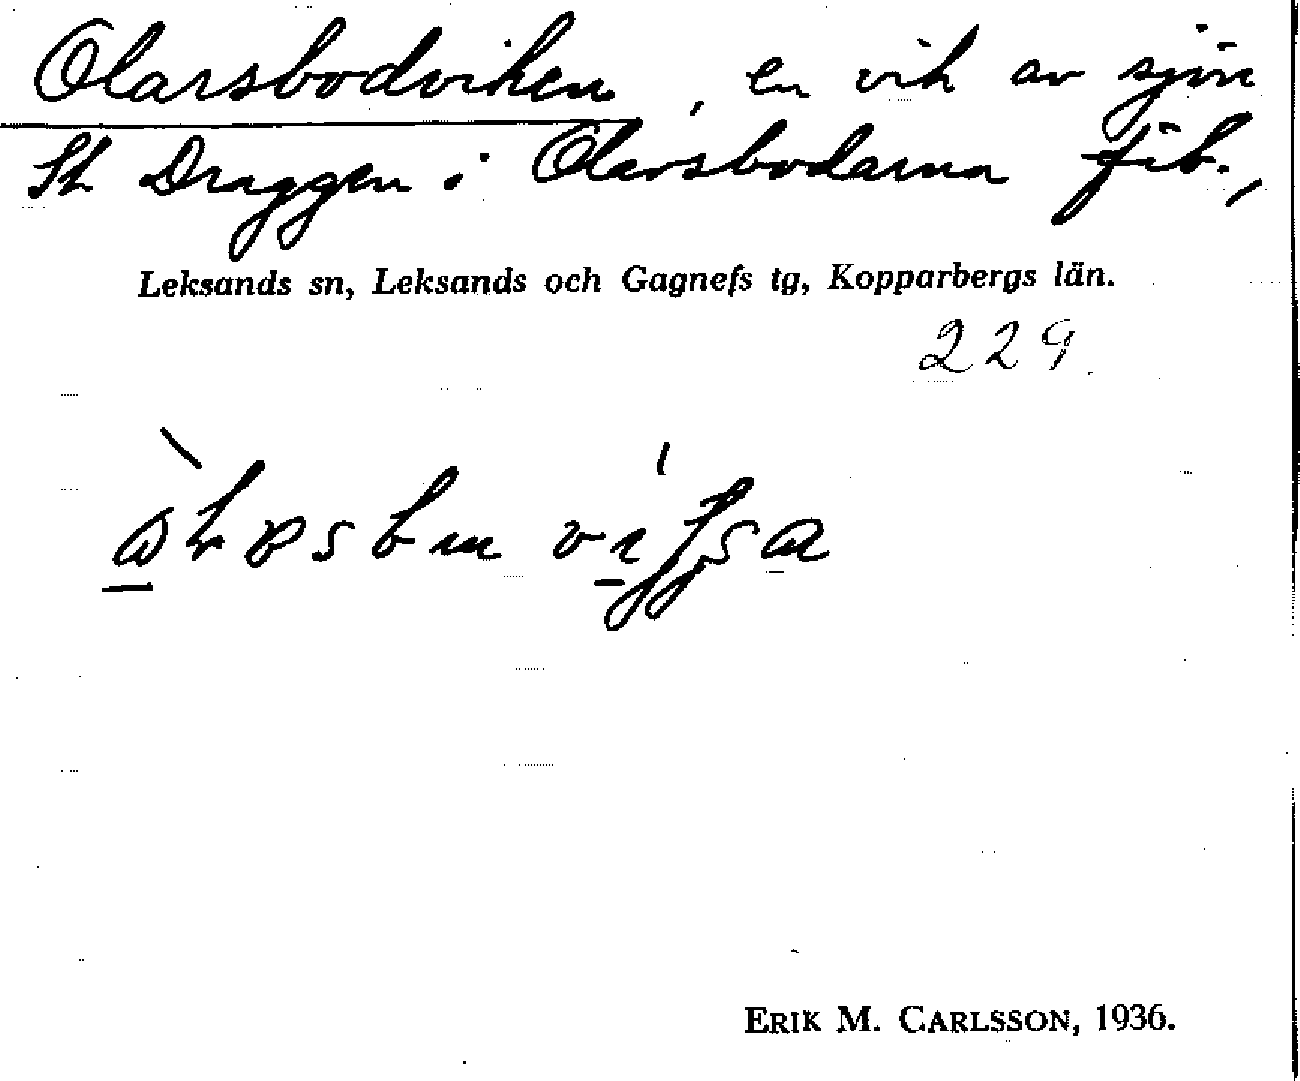 Olarsbodviken, en vik av sjön
St Draggen i Olarsbodarna fäb.,
Leksands sn, Leksands och Gagnefs tg, Kopparbergs län.
229.
ERIK M. CARLSSON, 1936.